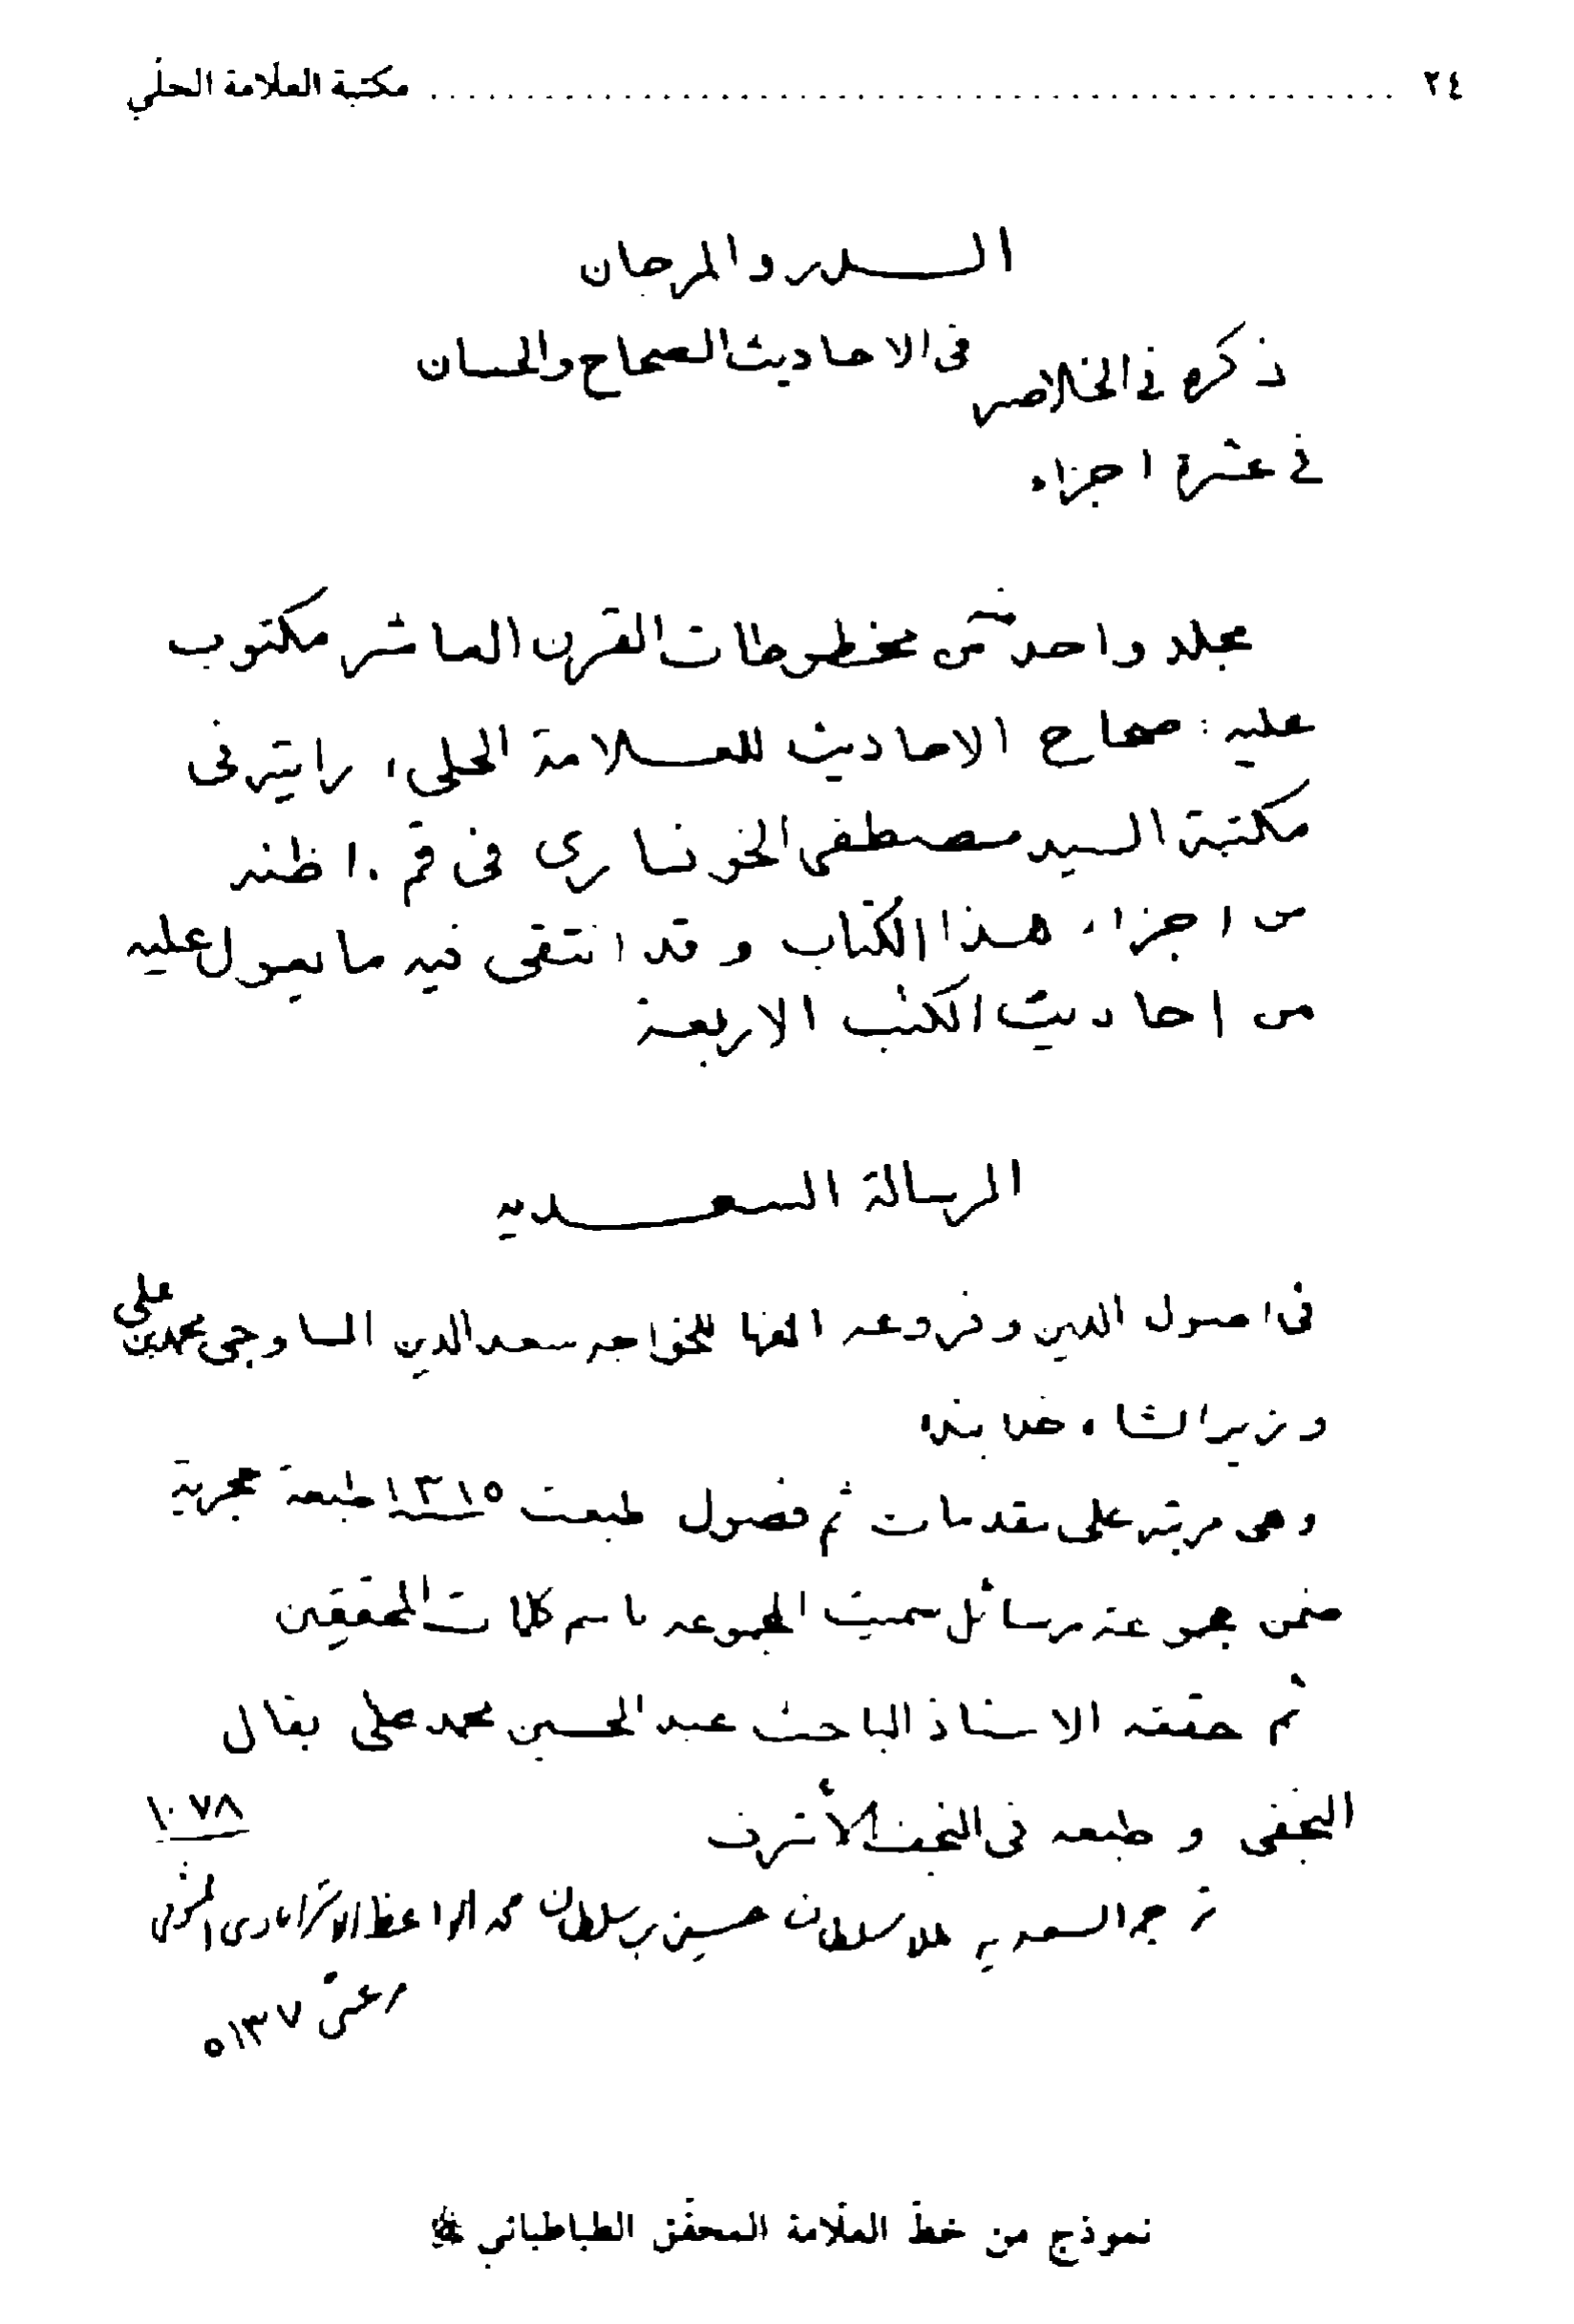 ٢٤ ........ مكتبة العلّامة الحلّي
الدرر والمرجان
فى الاحاديث الصحاح والحسان
ذكره في الخلاصه
في عشرة اجزاء
مجلد واحد من مخطوطات القرن العاشر مكتوب
عليه : صحاح الاحاديث للعلامة الحلى ، رايته فى
مكتبة السيد مصطفى الخونسارى فى قم . اظنه
من اجزاء هذا الكتاب وقد انتقى فيه ما يعول عليه
من احاديث الكتب الاربعة
الرسالة السعديه
فى اصول الدين وفروعه الفها للخواجه سعد الدين الساوجى محمد بن على
وزير الشاه خدابنده
وهى مرتبه على مقدمات ثم فصول طبعت ١٣١٥ طبعة حجرية
ضمن مجموعة رسائل سميت المجموعه باسم كلمات المحققين
ثم حققه الاستاذ الباحث عبد الحسين محمد على بقال
النجفى و طبعه فى النجف الأشرف
ترجم السعديه سلطان حسين بن سلطان محمد الواعظ الاسترابادى المتوفى ١٠٧٨
٥١٣٧
نموذج من خطّ العلّامة المحقّق الطباطبائي